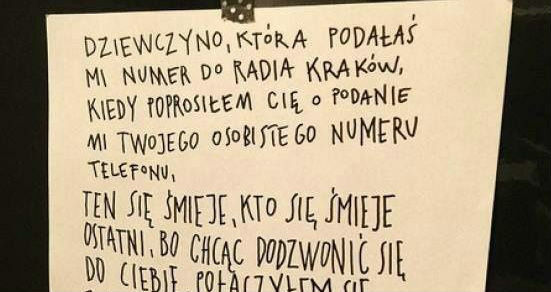 DZIEWCZYNO, KTÓRA PODAŁAŚ
MI NUMER DO RADIA KRAKÓW,
KIEDY POPROSIŁEM CIĘ O PODANIE
MI TWOJEGO OSOBISTEGO NUMERU
TELEFONU,
TEN SIĘ ŚMIEJE, KTO SIĘ ŚMIEJE
OSTATNI, BO CHCĄC DODZWONIĆ SIĘ
DO CIEBIE, POŁĄCZYŁEM SIĘ